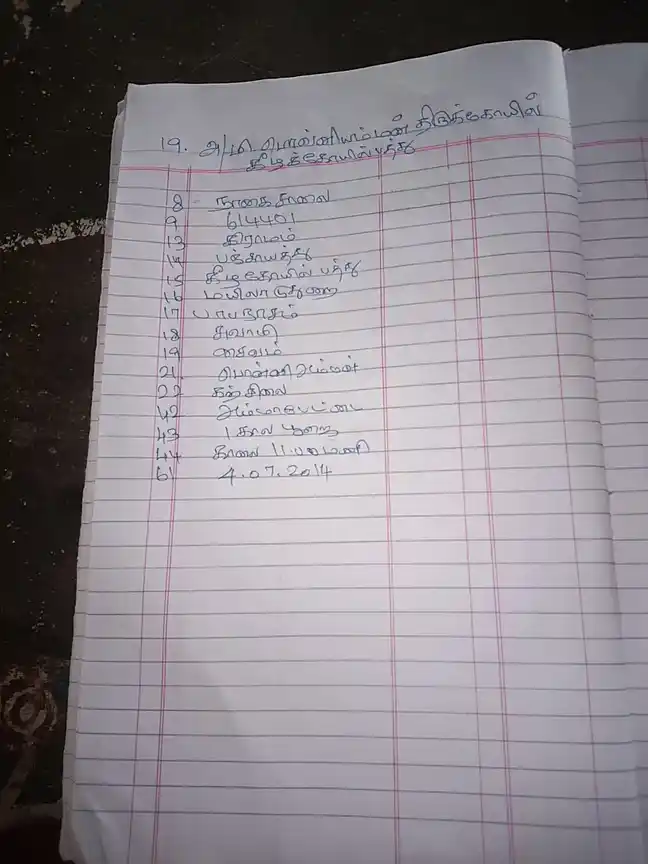 19. அ/மி பொன்னியம்மன் திருக்கோயில்
கீழக்கோயில்பத்து
8 - நாகை சாலை
9 614401
13 கிராமம்
14 பஞ்சாயத்து
15 கீழகோயில் பத்து
16 மயிலாடுதுறை
17 பாபநாசம்
18 சுவாமி
19 சைவம்
21 பொன்னி அம்மன்
22 கற்சிலை
42 அம்மாபேட்டை
43 1 கால பூஜை
44 காலை 11. மணி
61 4.07.2014